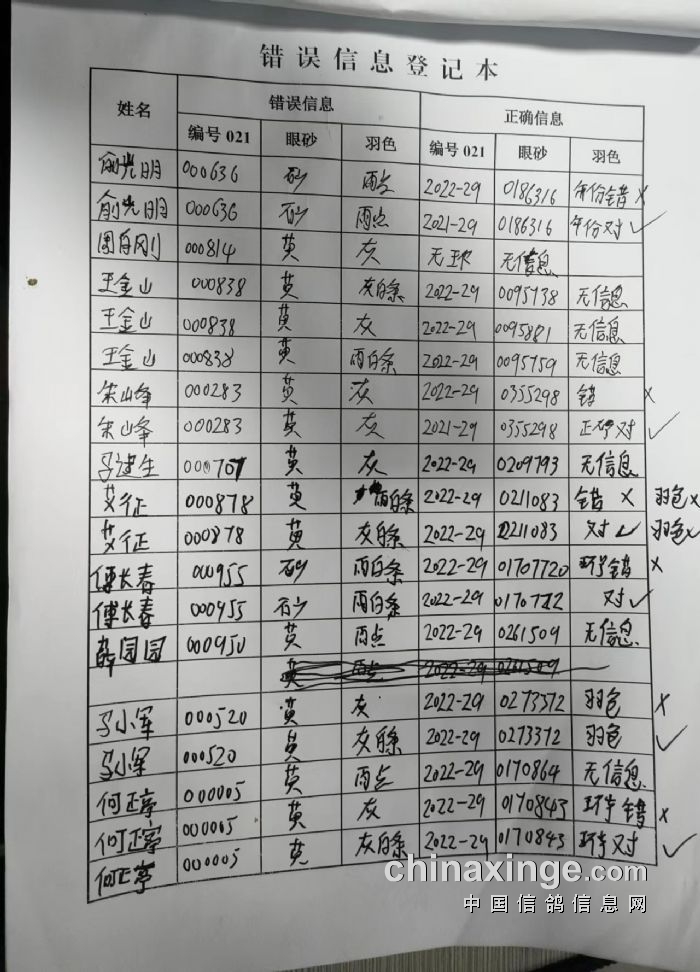 错误信息登记本
姓名 错误信息 正确信息
编号 021 眼砂 羽色 编号 021 眼砂 羽色
俞光明 000636 砂 雨点 2022-29 0186316 年份错 ×
俞光明 000636 砂 雨点 2021-29 0186316 年份对 ✓
刚 000814 黄 灰 无环 无信息
王金山 000838 黄 灰白条 2022-29 0095738 无信息
王金山 000838 黄 灰 2022-29 0095881 无信息
王金山 000838 黄 雨白条 2022-29 0095759 无信息
朱山峰 000283 黄 灰 2022-29 0355298 错 ×
朱山峰 000283 黄 灰 2021-29 0355298 正确 对 ✓
马建生 000707 黄 灰 2022-29 0209793 无信息
艾行正 000878 黄 雨白条 2022-29 0211083 错 × 羽色×
艾行正 000878 黄 灰白条 2022-29 0211083 对 ✓ 羽色×
傅长春 000955 砂 雨白条 2022-29 01707720 环号错 ×
傅长春 000955 砂 雨白条 2022-29 0170772 对 ✓
薛园园 000950 黄 雨点 2022-29 0261509 无信息
黄 雨点 2022-29 0261509
马小军 000520 黄 灰 2022-29 0273372 羽色 ×
马小军 000520 黄 灰白条 2022-29 0273372 羽色 ✓
何正寧 000005 黄 雨点 2022-29 0170864 无信息
何正寧 000005 黄 灰 2022-29 0170843 环字错 ×
何正寧 000005 黄 灰白条 2022-29 0170843 环字对 ✓
chinaxinge.com
中国信鸽信息网